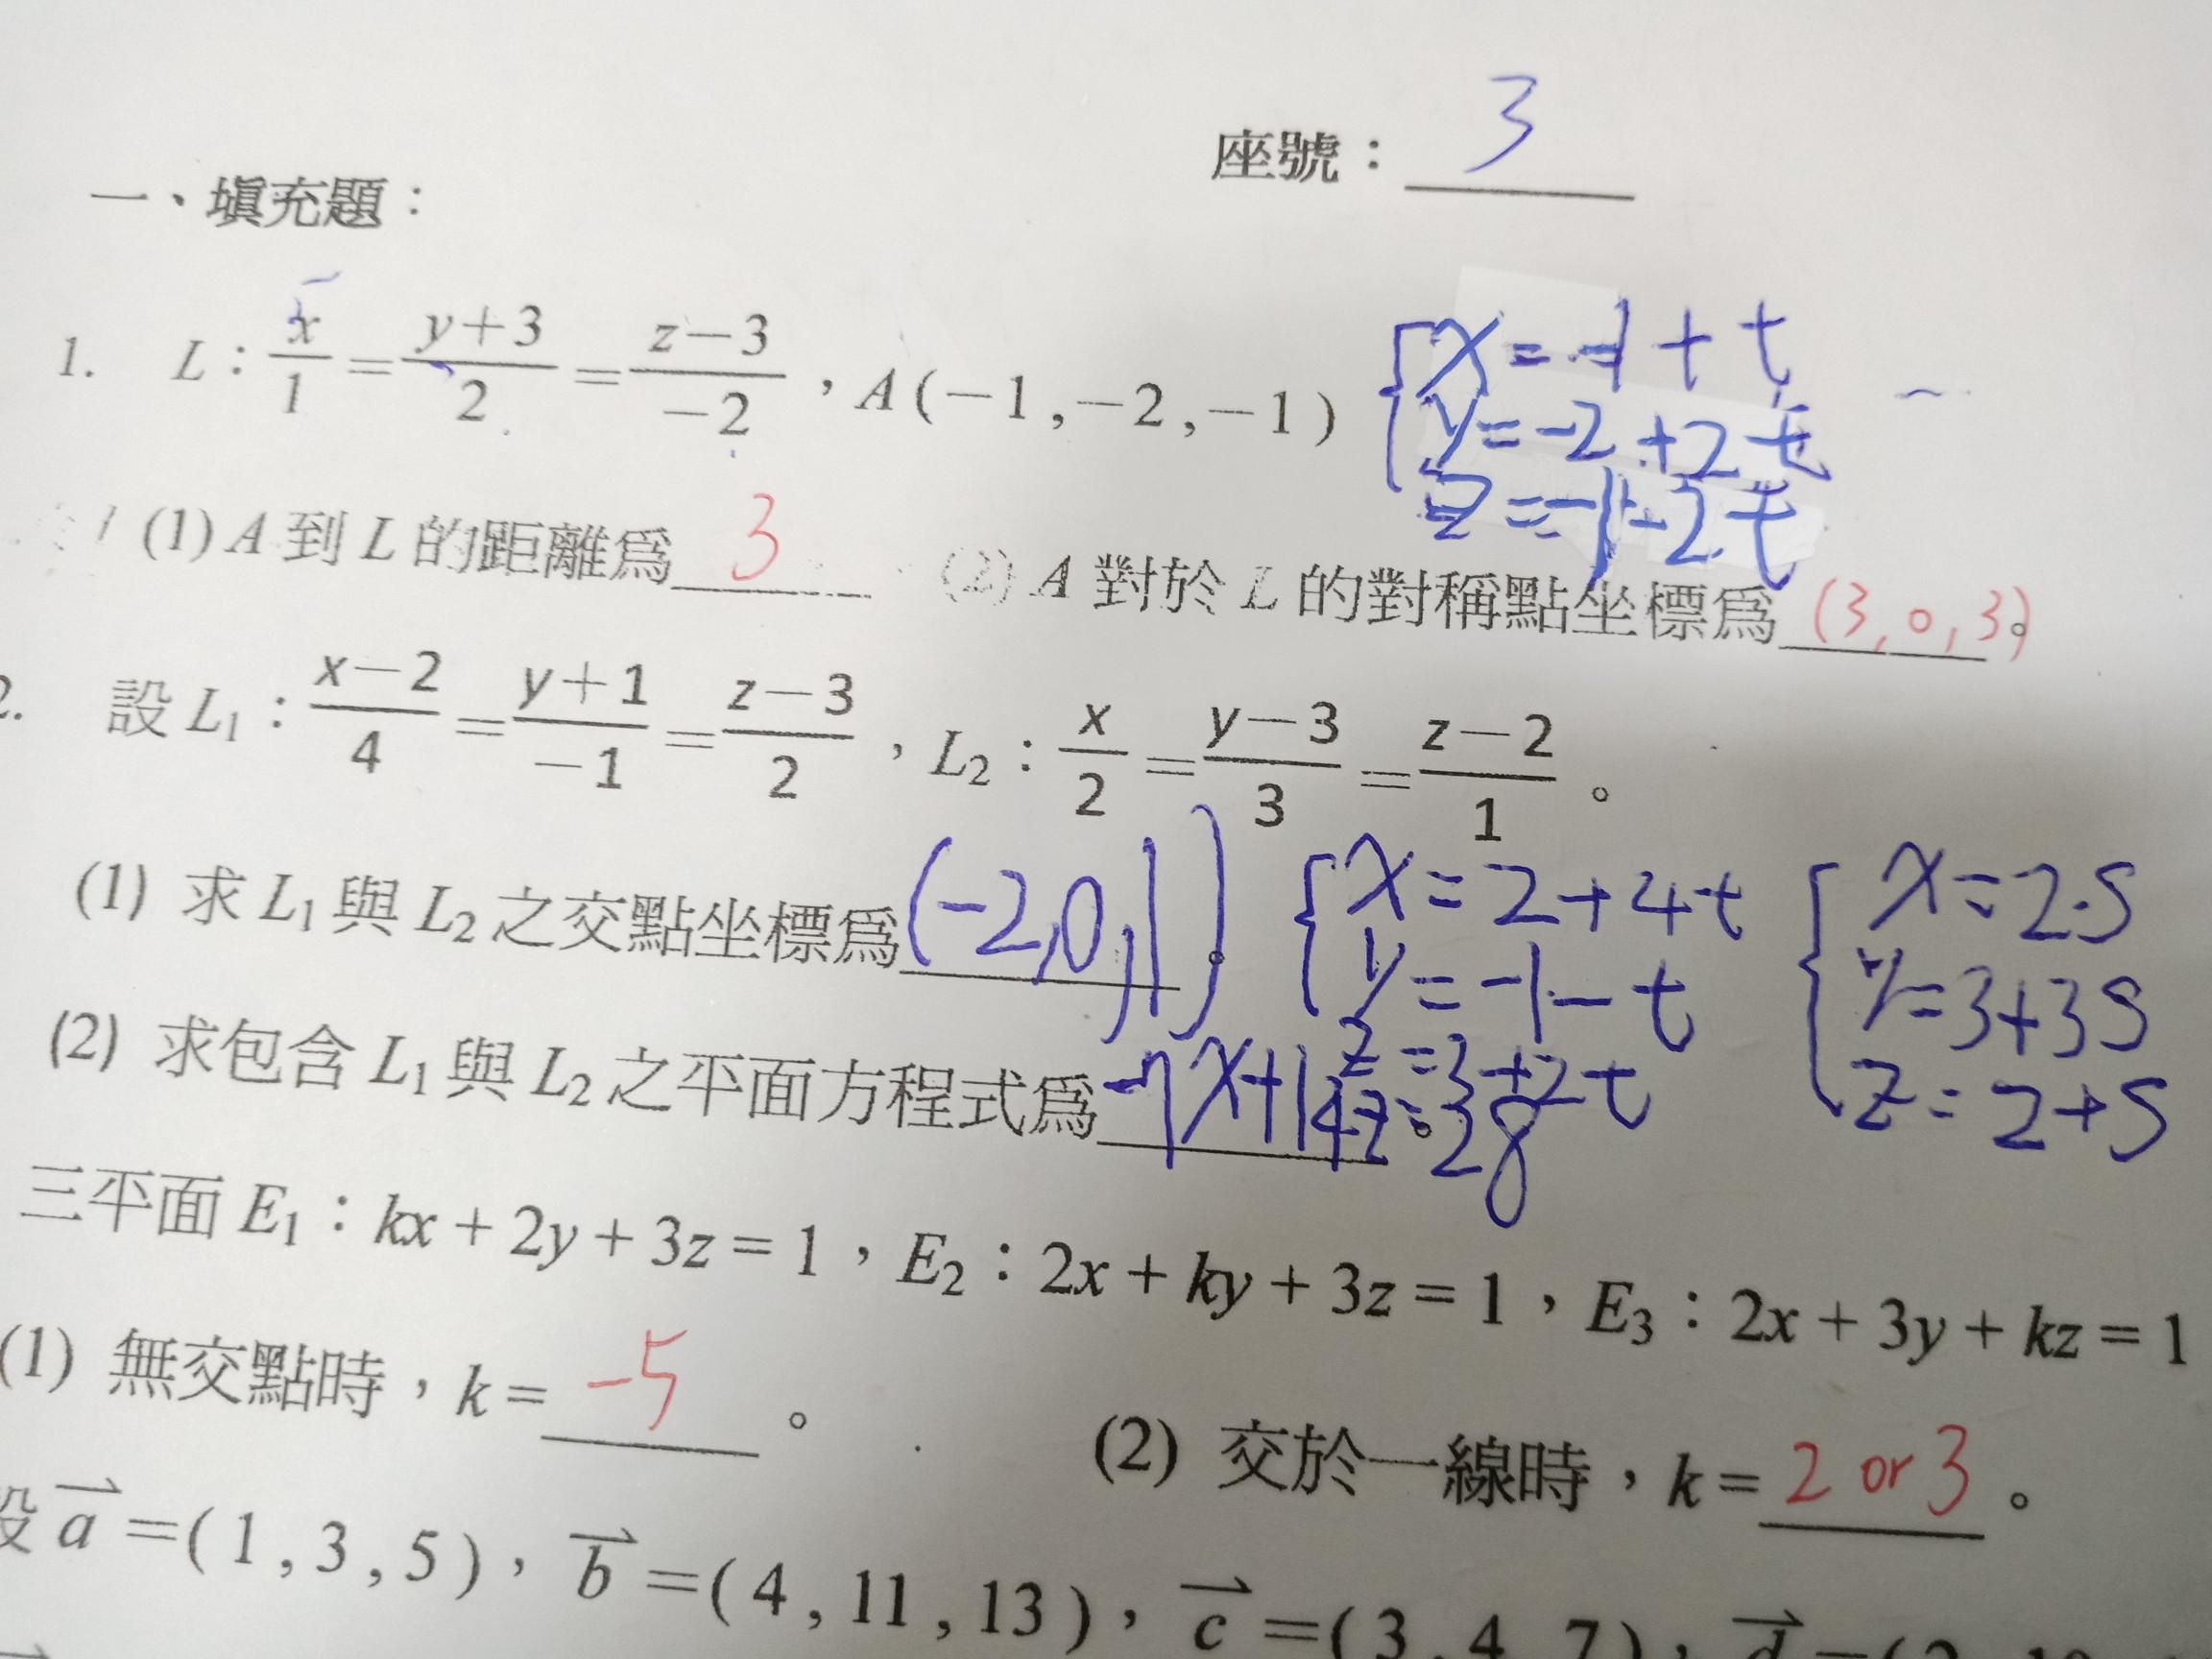 座號：3
一、填充題：
1. L：x/1=(y+3)/2=(z-3)/-2，A(-1,-2,-1)
{x=-1+t
y=-2+2t
z=-1-2t
(1)A到L的距離為3 (2)A對於L的對稱點坐標為(3,0,3)。
2. 設L₁：(x-2)/4=(y+1)/-1=(z-3)/2，L₂：x/2=(y-3)/3=(z-2)/1。
(1) 求L₁與L₂之交點坐標為(-2,0,1)。
{x=2+4t
y=-1-t
z=3+2t
{x=2s
y=3+3s
z=2+s
(2) 求包含L₁與L₂之平面方程式為-7x+14z=28。
三平面E₁：kx+2y+3z=1，E₂：2x+ky+3z=1，E₃：2x+3y+kz=1
(1) 無交點時，k=-5。 (2) 交於一線時，k=2 or 3。
設a⃗=(1,3,5)，b⃗=(4,11,13)，c⃗=(3,4,7)，d⃗=(2